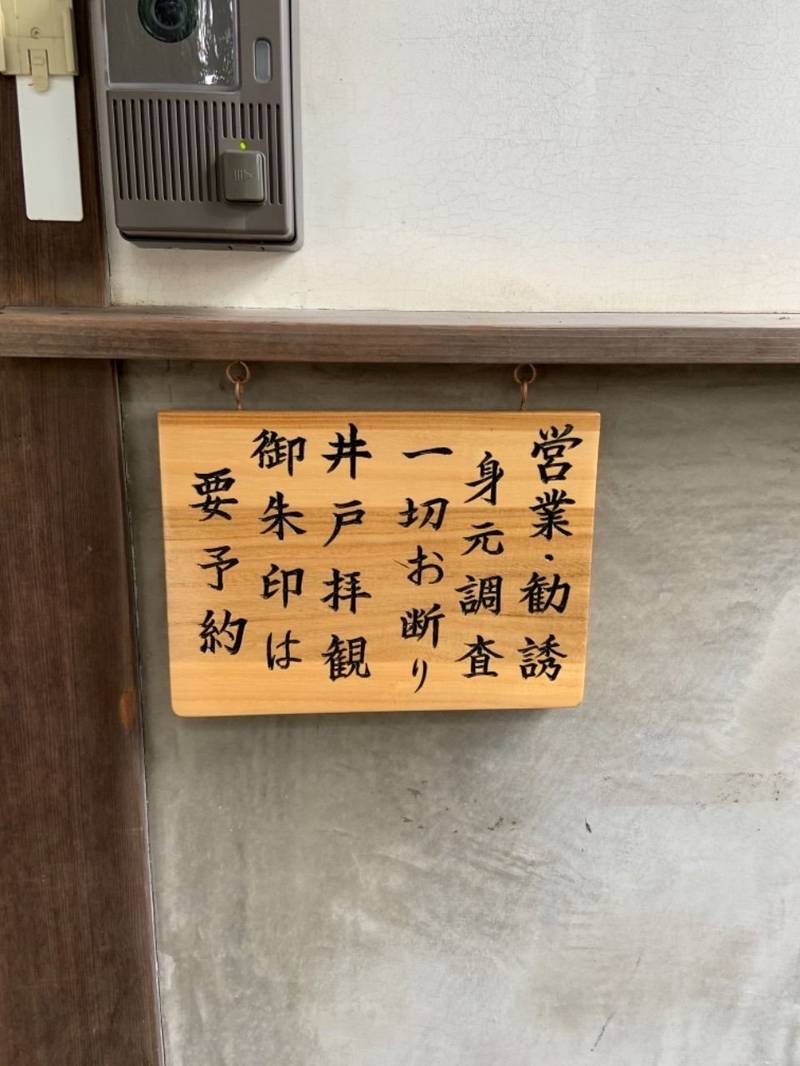 営業・勧誘
身元調査
一切お断り
井戸拝観
御朱印は
要予約